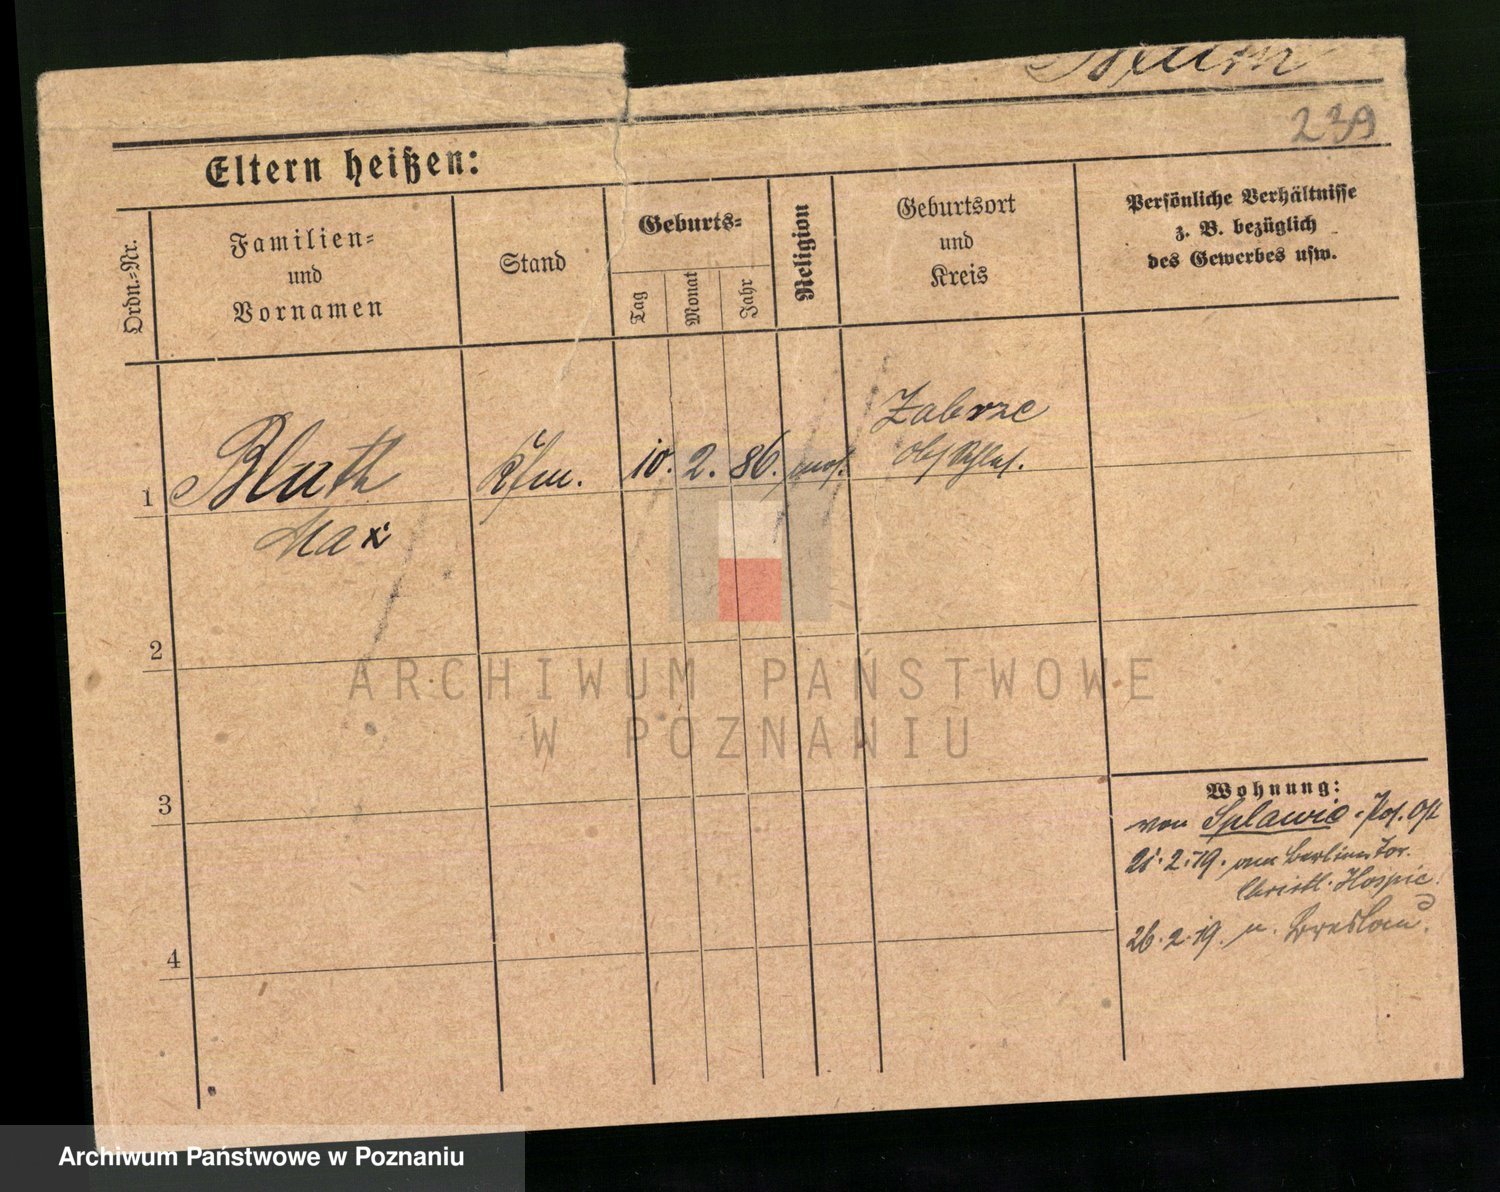 239
Eltern heißen:
Ordn.-Nr.
Familien-
und
Vornamen
Stand
Geburts-
Tag
Monat
Jahr
Religion
Geburtsort
und
Kreis
Persönliche Verhältnisse
z. B. bezüglich
des Gewerbes usw.
1
Bluth
Max
Kfm.
10. 2. 86. mos.
Zabrze
2
3
4
Wohnung:
von Splawie - Pos. Ost
21.2.19. am Berliner Tor.
Christl. Hospiz
26.2.19. n. Breslau.
ARCHIWUM PAŃSTWOWE
W POZNANIU
Archiwum Państwowe w Poznaniu